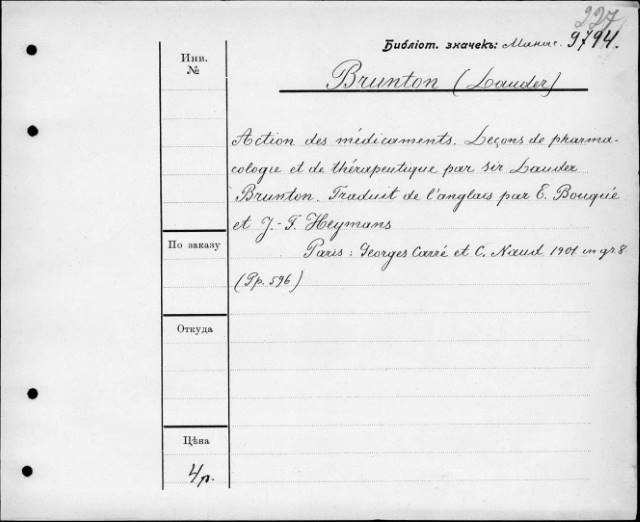 227
Библіот. значекъ: Манас. 9794.
Инв.
№
Brunton (Lauder)
Action des médicaments. Leçons de pharma-
cologie et de thérapeutique par sir Lauder
Brunton. Traduit de l'anglais par E. Bouqué
et J.-F. Heymans
По заказу
Paris: Georges Carré et C. Naud 1901 in gr. 8
(Pp. 596)
Откуда
Цѣна
4 р.